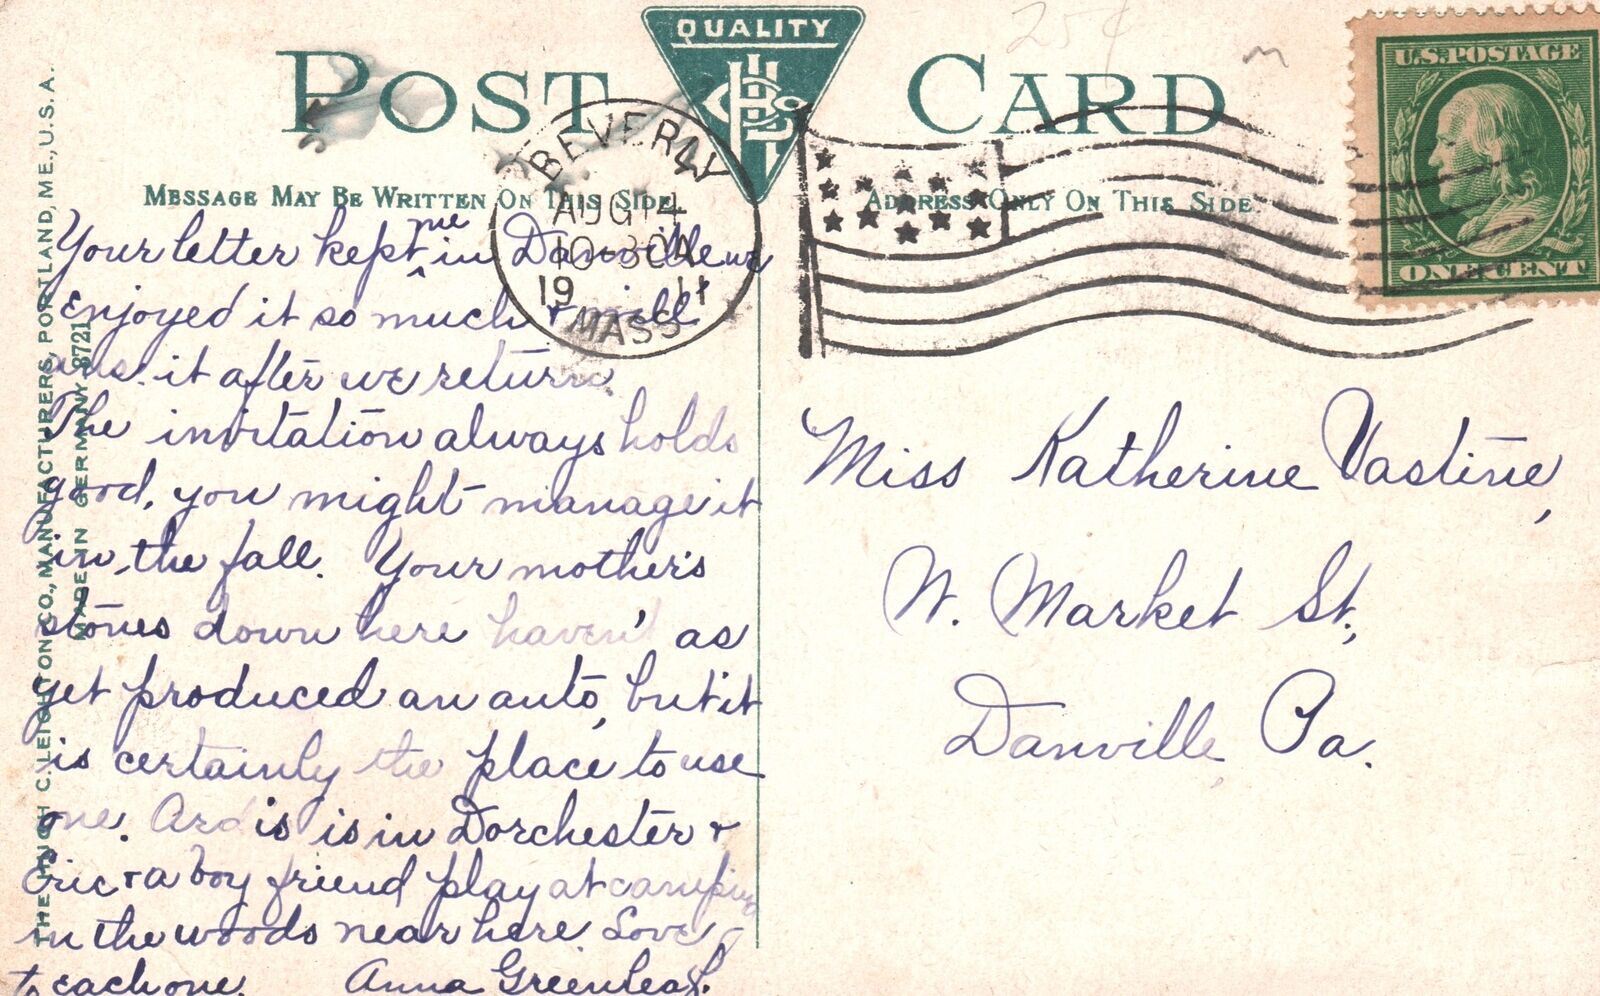 QUALITY
POST CARD
H C L Co
25¢
U.S. POSTAGE
ONE CENT
BEVERLY
AUG 14
10-30A
19 11
MASS
MESSAGE MAY BE WRITTEN ON THIS SIDE
ADDRESS ONLY ON THIS SIDE.
THE HUGH C. LEIGHTON CO., MANUFACTURERS, PORTLAND, ME., U.S.A.
MADE IN GERMANY 8721
Your letter kept me in Danville we
enjoyed it so much & will
ans. it after we return.
The invitation always holds
good, you might manage it
in the fall. Your mother's
stories down here haven't as
yet produced an auto, but it
is certainly the place to use
one. Ardis is in Dorchester &
Eric & a boy friend play at camping
in the woods near here. Love
to each one. Anna Greenleaf.
Miss Katherine Vastine,
W. Market St.,
Danville, Pa.